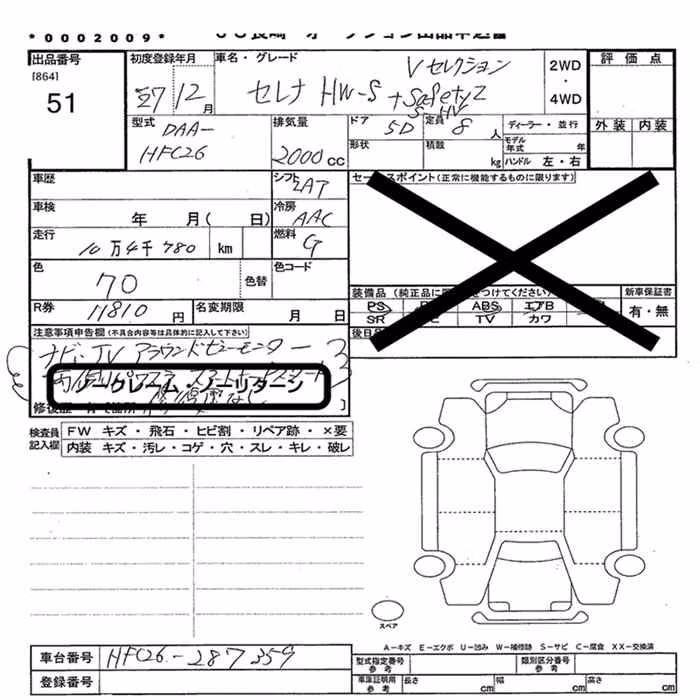 *0002009*
出品番号 初度登録年月 車名・グレード 2WD 評価点
[864] Vセレクション
51 27 12月 セレナ HW-S +SafetyⅡ ・
S-HV 4WD
型式 排気量 ドア 5D 定員 8人 ディーラー・並行 外装 内装
DAA- 形状 積載 モデル年式 年
HFC26 2000cc kg ハンドル 左・右
車歴 シフト AT セールスポイント(正常に機能するものに限ります)
車検 年 月( 日) 冷房 AAC
走行 10万4千780 km 燃料 G
色 70 色替 色コード
装備品(純正品に をつけてください) 新車保証書
PS ABS エアB 有・無
SR TV カワ
R券 11810円 名変期限 月 日
後日
注意事項申告欄(不具合内容等は具体的に記入して下さい)
ナビ・TV アラウンドビューモニター
ノークレーム・ノーリターン
検査員 FW キズ・飛石・ヒビ割・リペア跡・×要
記入欄 内装 キズ・汚レ・コゲ・穴・スレ・キレ・破レ
スペア
A-キズ E-エクボ U-凹み W-補修跡 S-サビ C-腐食 XX-交換済
車台番号 HFC26-287359 型式指定番号 参考 類別区分番号 参考
登録番号 車庫証明用 参考 長さ cm 幅 cm 高さ cm